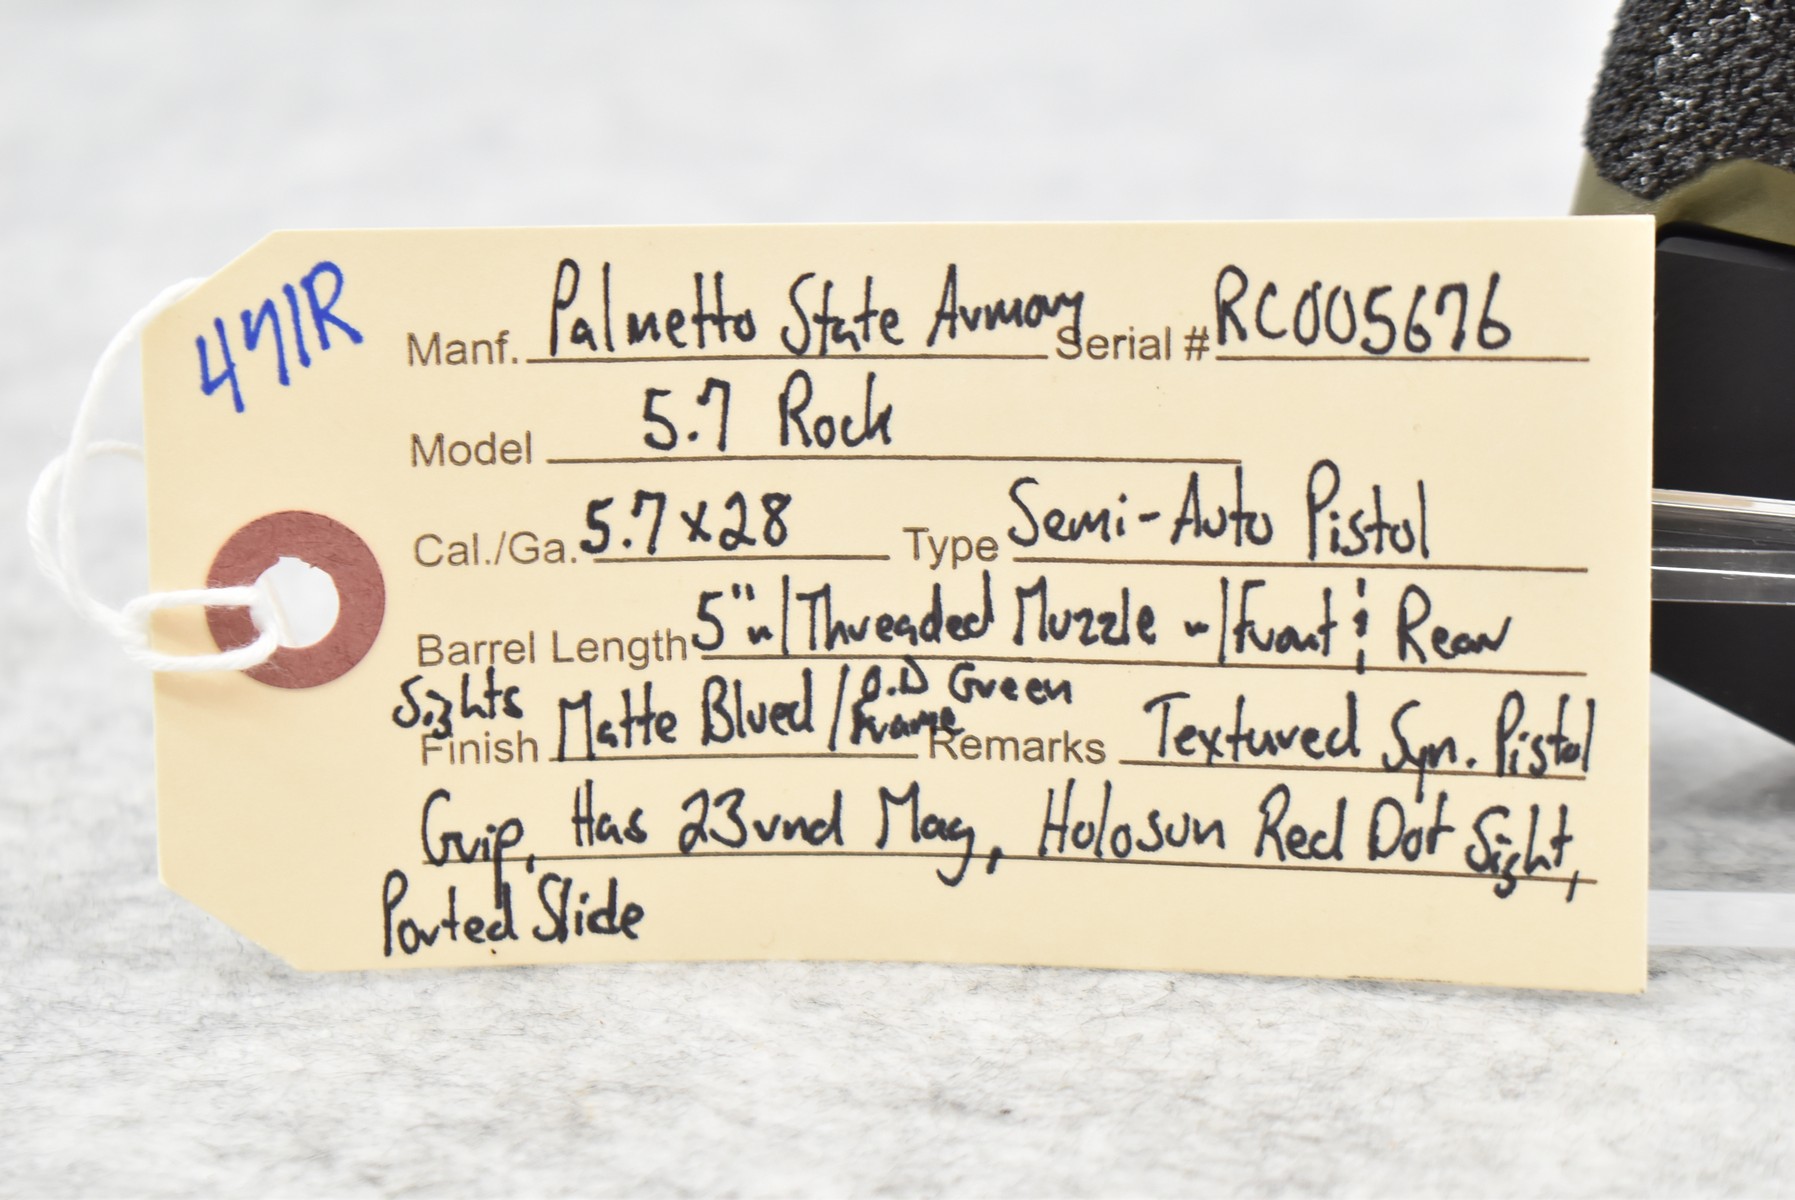 471R
Manf. Palmetto State Armory Serial # RC005676
Model 5.7 Rock
Cal./Ga. 5.7x28 Type Semi-Auto Pistol
Barrel Length 5" w/Threaded Muzzle w/Front & Rear
Sights
Finish Matte Blued/O.D Green Frame Remarks Textured Syn. Pistol
Grip, Has 23rnd Mag, Holosun Red Dot Sight,
Ported Slide